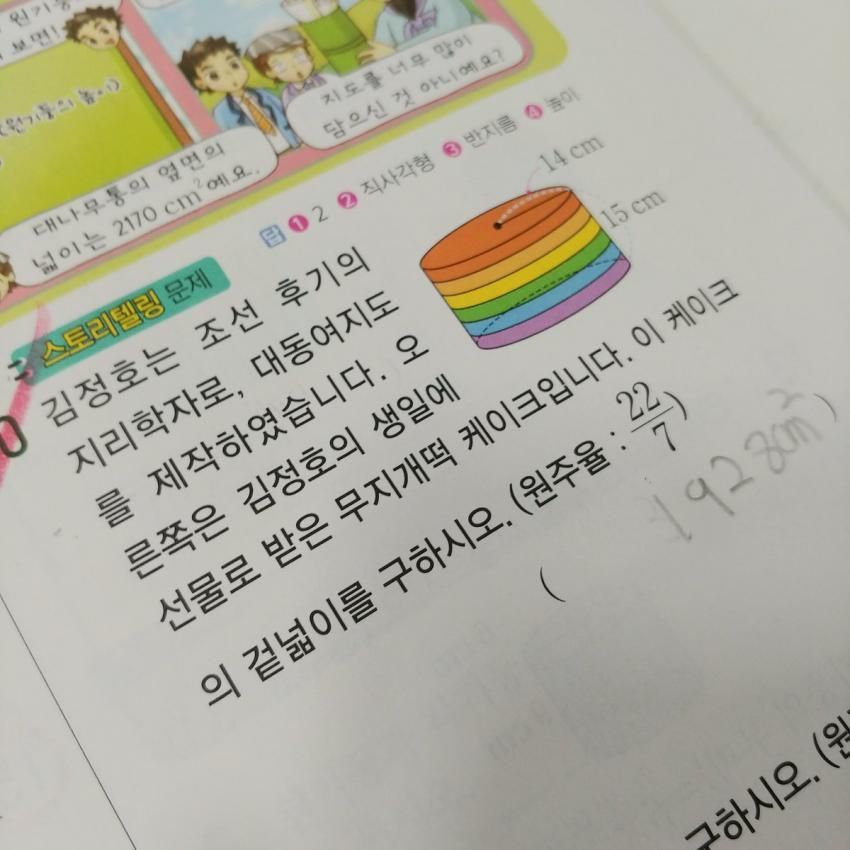 원기둥
보면!
(원기둥의 높이)
지도를 너무 많이
담으신 것 아니예요?
대나무통의 옆면의
넓이는 2170 cm²예요.
답 ❶ 2 ❷ 직사각형 ❸ 반지름 ❹ 높이
14 cm
15 cm
스토리텔링 문제
0 김정호는 조선 후기의
지리학자로, 대동여지도
를 제작하였습니다. 오
른쪽은 김정호의 생일에
선물로 받은 무지개떡 케이크입니다. 이 케이크
의 겉넓이를 구하시오. (원주율 : 22/7)
( 1928cm² )
구하시오. (원